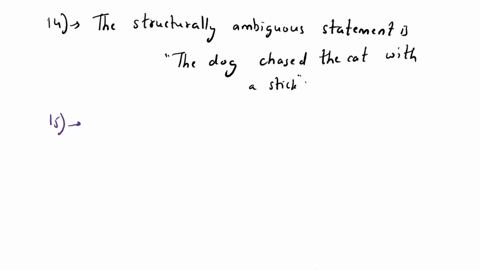 14)→ The structurally ambiguous statement is
"The dog chased the cat with
a stick".
15)→